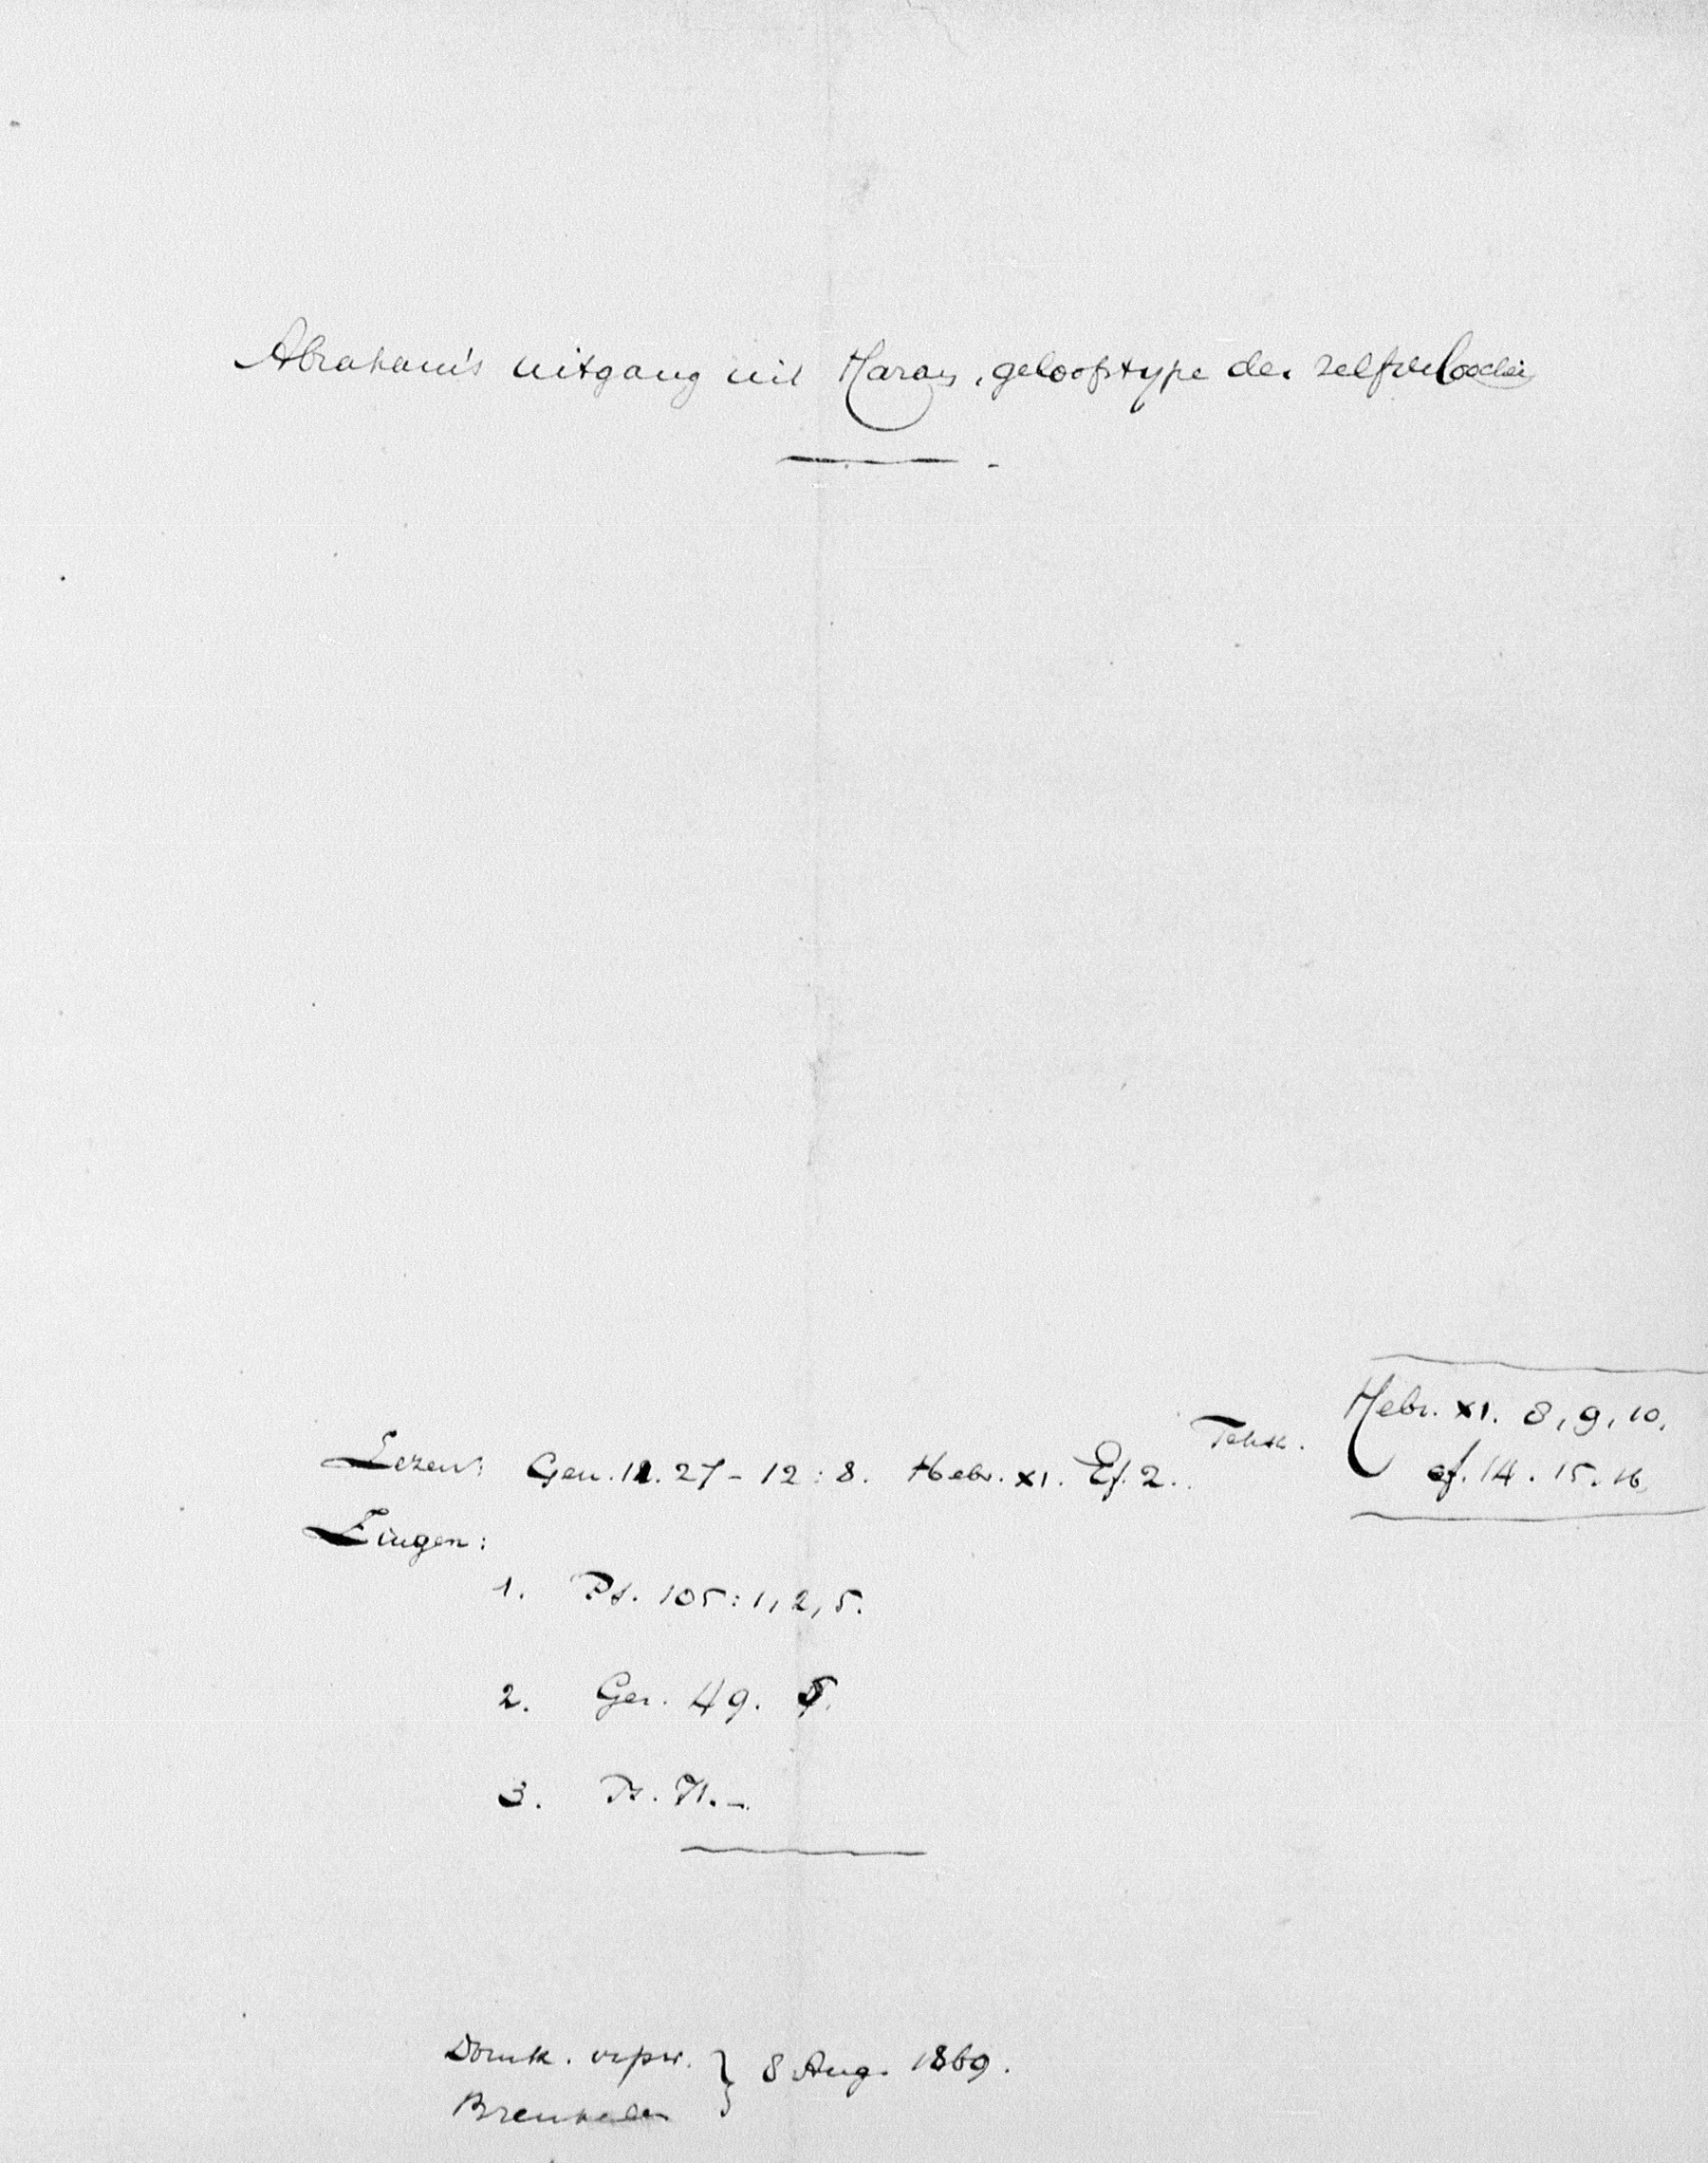 Abraham's uitgang uit Haran, geloofstype der zelfverloochen
Hebr. XI. 8, 9, 10,
Tekst.
cf. 14. 15. 16
Lezen: Gen. 11. 27 - 12 : 8. Hebr. XI. Ef. 2.
Zingen:
1. Ps. 105 : 1, 2, 5.
2. Gez. 49. 5.
3. Ps. 71. -
Domk. 8 Aug. 1869.
Breukelen